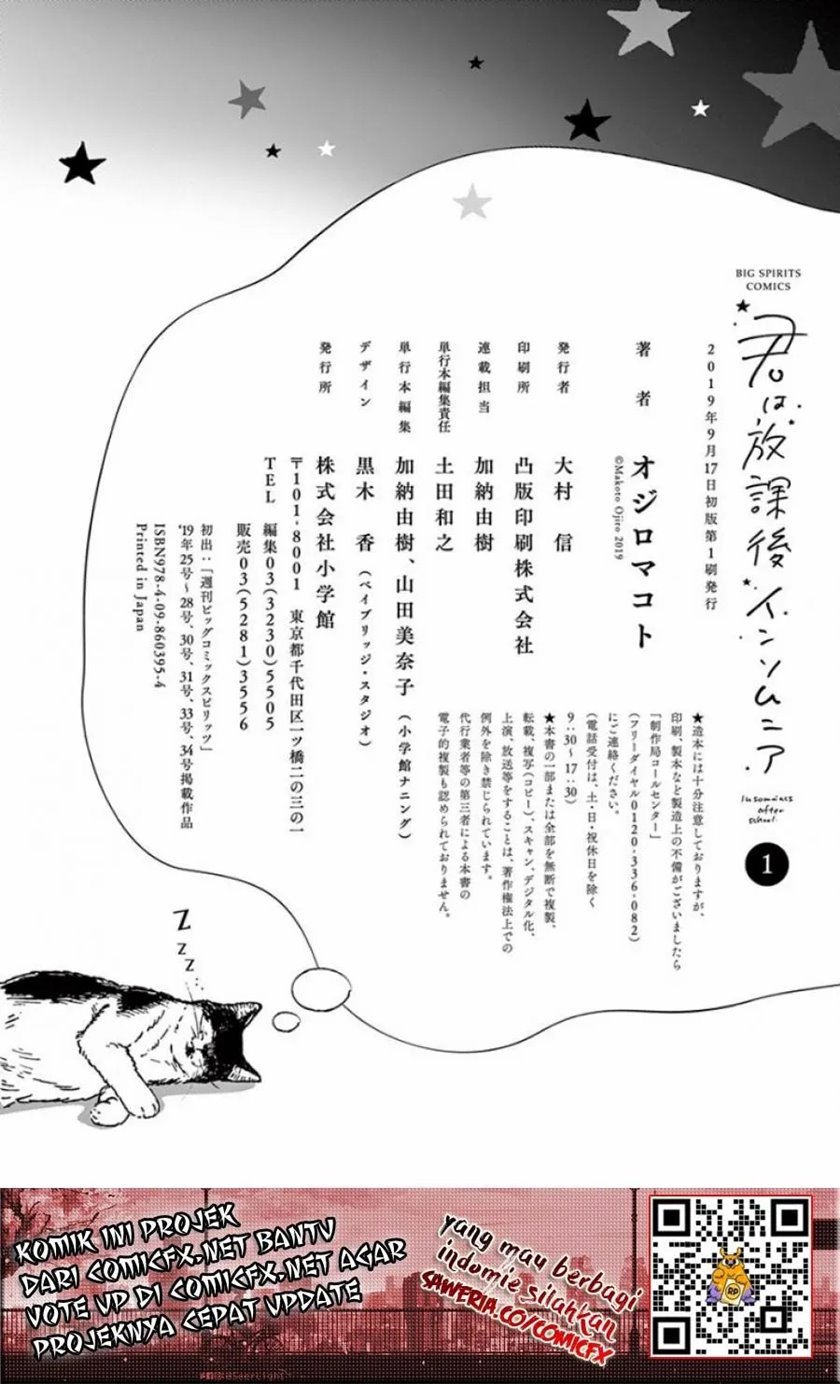 BIG SPIRITS
COMICS
君は放課後インソムニア
Insomniacs
after
school
1
2019年9月17日初版第1刷発行
著者 オジロマコト
©Makoto Ojiro 2019
発行者 大村 信
印刷所 凸版印刷株式会社
連載担当 加納由樹
単行本編集責任 土田和之
単行本編集 加納由樹、山田美奈子(小学館ナニング)
デザイン 黒木 香(ベイブリッジ・スタジオ)
発行所 株式会社小学館
〒101-8001 東京都千代田区一ツ橋二の三の一
TEL 編集03(3230)5505
販売03(5281)3556
初出:「週刊ビッグコミックスピリッツ」
'19年25号〜28号、30号、31号、33号、34号掲載作品
ISBN978-4-09-860395-4
Printed in Japan
★造本には十分注意しておりますが、
印刷、製本など製造上の不備がございましたら
「制作局コールセンター」
(フリーダイヤル0120-336-082)
にご連絡ください。
(電話受付は、土・日・祝休日を除く
9:30〜17:30)
★本書の一部または全部を無断で複製、
転載、複写(コピー)、スキャン、デジタル化、
上演、放送等をすることは、著作権法上での
例外を除き禁じられています。
代行業者等の第三者による本書の
電子的複製も認められておりません。
Z
Z
Z
KOMIK INI PROJEK
DARI COMICFX.NET BANTU
VOTE UP DI COMICFX.NET AGAR
PROJEKNYA CEPAT UPDATE
yang mau berbagi
indomie silahkan
SAWERIA.CO/COMICFX
RP